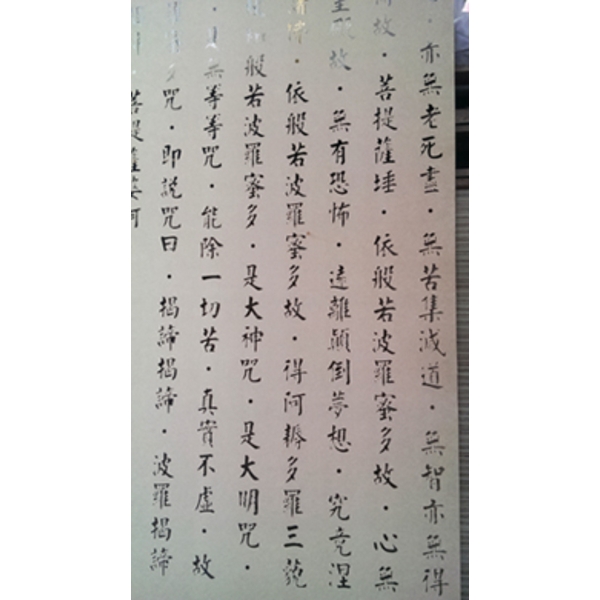 亦無老死盡·無苦集滅道·無智亦無得
故·菩提薩埵·依般若波羅蜜多故·心無
故·無有恐怖·遠離顛倒夢想·究竟涅
佛·依般若波羅蜜多故·得阿耨多羅三藐
般若波羅蜜多·是大神咒·是大明咒·
是無等等咒·能除一切苦·真實不虛·故
多咒·即說咒曰·揭諦揭諦·波羅揭諦
菩提薩婆訶